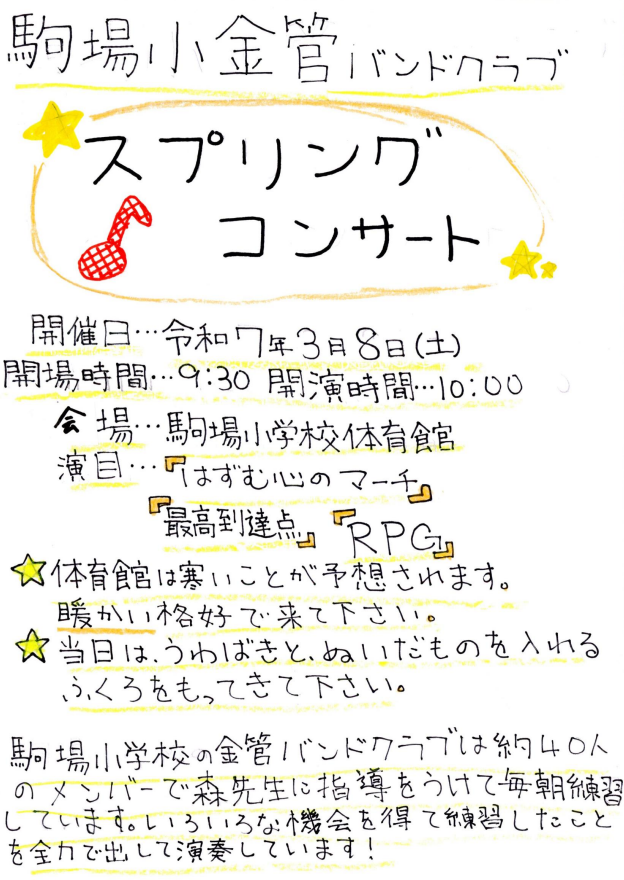 駒場小金管バンドクラブ
スプリング
コンサート
開催日…令和7年3月8日(土)
開場時間…9:30 開演時間…10:00
会場…駒場小学校体育館
演目…『はずむ心のマーチ』
『最高到達点』『RPG』
☆体育館は寒いことが予想されます。
暖かい格好で来て下さい。
☆当日は、うわばきと、ぬいだものを入れる
ふくろをもってきて下さい。
駒場小学校の金管バンドクラブは約40人
のメンバーで森先生に指導をうけて毎朝練習
しています。いろいろな機会を得て練習したこと
を全力で出して演奏しています!